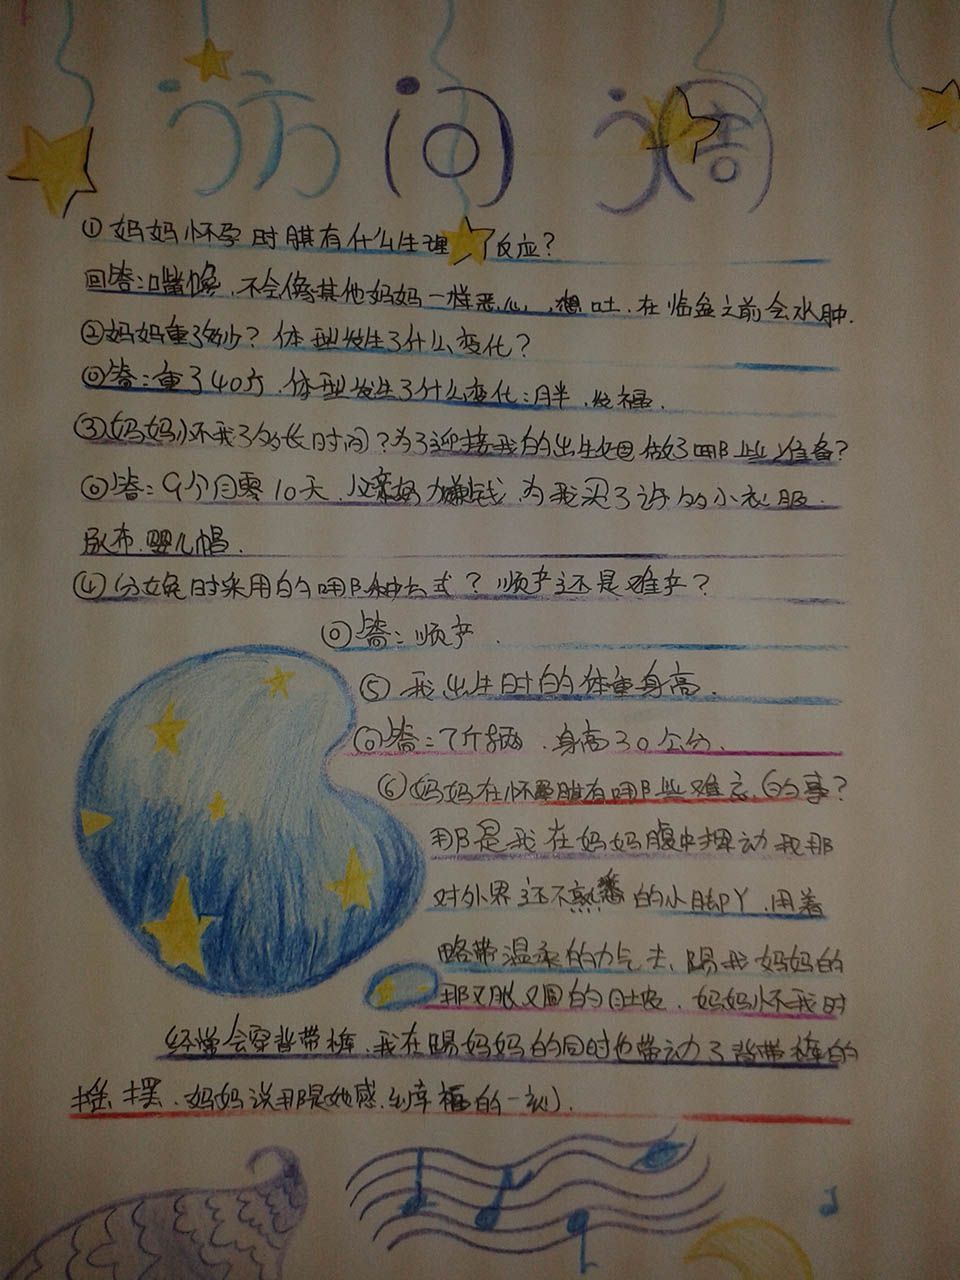 访问调
①妈妈怀孕时期有什么生理反应?
回答:嘴馋、不会像其他妈妈一样恶心,想吐.在临盆之前会水肿.
②妈妈重了多少?体型发生了什么变化?
回答:重了40斤.体型发生了什么变化:胖.发福.
③妈妈怀我了多长时间?为了迎接我的出生做了哪些准备?
回答:9个月零10天.父亲努力赚钱.为我买了许多的小衣服.
尿布.婴儿帽.
④分娩时采用的哪种方式?顺产还是难产?
回答:顺产.
⑤我出生时的体重身高.
回答:7斤 两.身高30公分.
⑥妈妈在怀孕期有哪些难忘的事?
那是我在妈妈腹中挥动我那
对外界还不熟悉的小脚丫.用着
略带温柔的力气去踢我妈妈的
那又胀又圆的肚皮.妈妈怀我时
经常会穿背带裤.我在踢妈妈的同时也带动了背带裤的
摇摆.妈妈说那是她感到幸福的一刻.